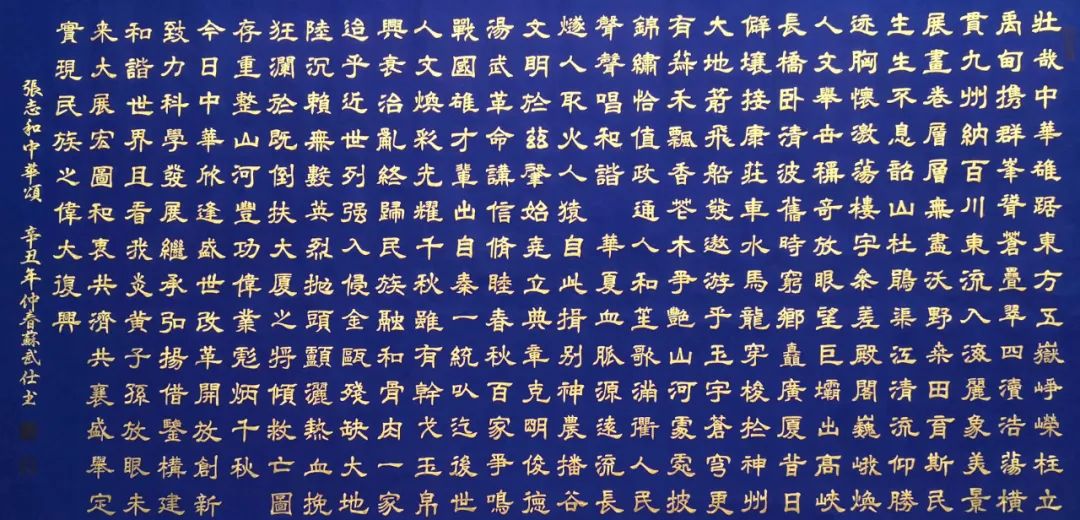 壯哉中華雄踞東方五嶽崢嶸柱立
禹甸携群峯聳蒼疊翠四瀆浩蕩橫
貫九州納百川東流入海麗象美景
展畫卷層層無盡沃野桑田育斯民
生生不息韶山杜鵑渠江清流仰勝
迹胸懷激蕩樓宇參差殿閣巍峨煥
人文舉世稱奇放眼望巨壩出高峽
長橋卧清波舊時窮鄉矗廣厦昔日
僻壤接康莊車水馬龍穿梭於神州
大地箭飛船發遨游乎玉宇蒼穹更
有禾飄香花木爭艷山河處處披
錦繡恰值政通人和笙歌滿衢人民
聲聲唱和諧 華夏血脈源遠流長
燧人取火人猿自此揖别神農播谷
文明於兹肇始堯立典章克明俊德
湯武革命講信脩睦春秋百家爭鳴
戰國雄才輩出自秦一統以迄後世
人文煥彩光耀千秋雖有幹戈玉帛
興衰治亂終歸民族融和骨肉一家
迨乎近世列强入侵金甌殘缺大地
陸沉賴無數英烈抛頭顱灑熱血挽
狂瀾於既倒扶大厦之將傾救亡圖
存重整山河豐功偉業彪炳千秋
今日中華欣逢盛世改革開放創新
致力科學發展繼承弘揚借鑒構建
和諧世界且看我炎黃子孫放眼未
来大展宏圖和衷共濟共襄盛舉定
實現民族之偉大復興
張志和中華頌 辛丑年仲春蘇武仕书